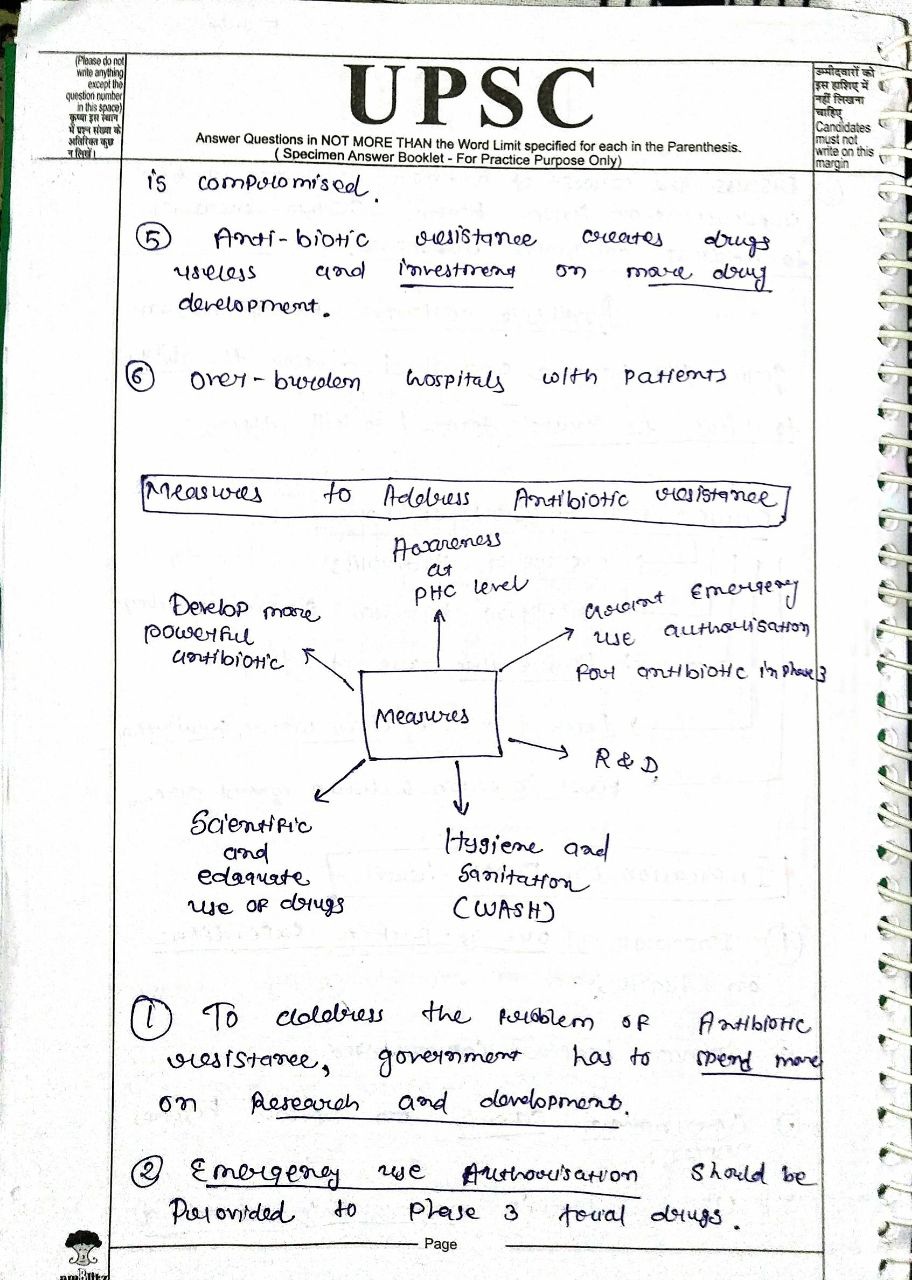 (Please do not
write anything
except the
question number
in this space)
कृपया इस स्थान
में प्रश्न संख्या के
अतिरिक्त कुछ
न लिखें।
UPSC
Answer Questions in NOT MORE THAN the Word Limit specified for each in the Parenthesis.
( Specimen Answer Booklet - For Practice Purpose Only)
उम्मीदवारों को
इस हाशिए में
नहीं लिखना
चाहिए
Candidates
must not
write on this
margin
is compromised.
5 Anti-biotic resistance creates drugs
useless and investment on more drug
development.
6 over-burden hospitals with patients
Measures to Address Antibiotic resistance
Awareness
at
PHC level
Develop more
powerful
antibiotic
Grant Emergency
use authorisation
for antibiotic in phase 3
Measures
R & D.
Scientific
and
edaquate
use of drugs
Hygiene and
Sanitation
(WASH)
1 To address the problem of Antibiotic
resistance, government has to spend more
on Research and development.
2 Emergency use Authorisation should be
Provided to Phase 3 trial drugs.
Page